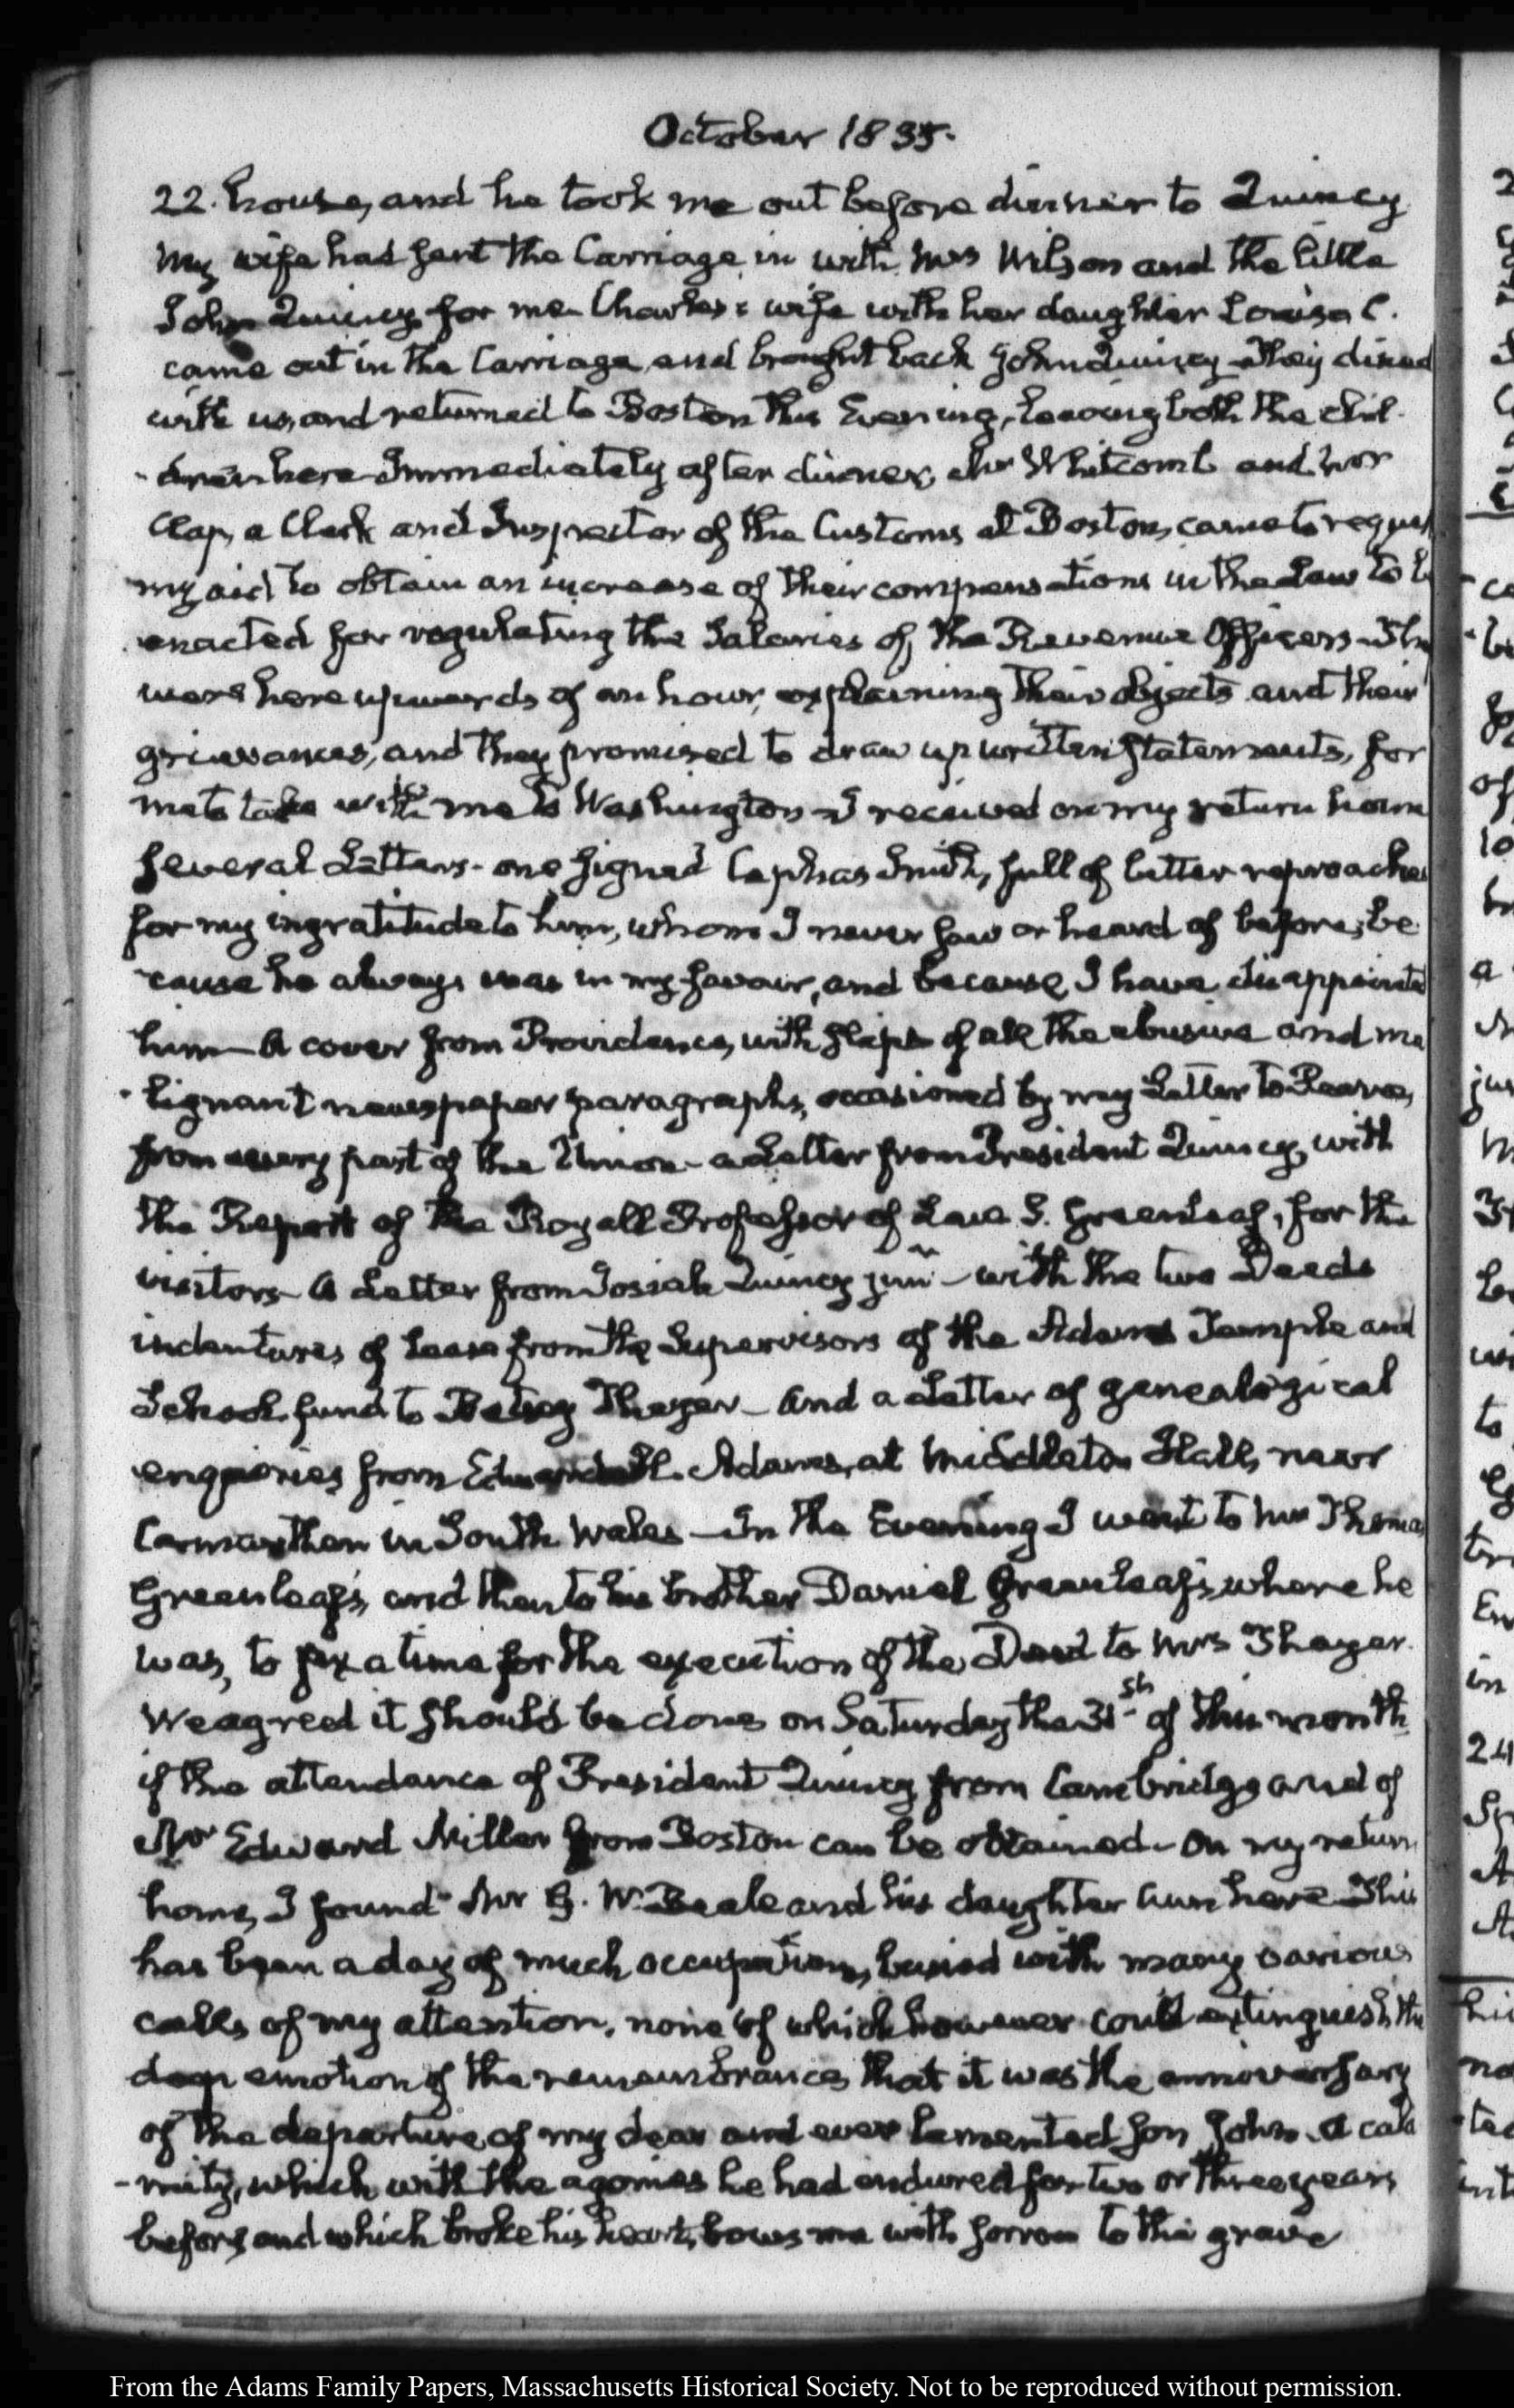 October 1835.
22. house, and he took me out before dinner to Quincy
My wife had sent the Carriage in with Mrs Wilson and the little
John Quincy for me. Charles's wife with her daughter Louisa C.
came out in the Carriage and brought back John Quincy. They dined
with us, and returned to Boston this Evening, leaving both the chil-
-dren here. Immediately after dinner, Mr Whitcomb and Mr
Clap, a Clerk and Inspector of the Customs at Boston, came to reques
my aid to obtain an increase of their compensations in the Law to b
enacted for regulating the Salaries of the Revenue Officers. The
were here upwards of an hour, explaining their objects and their
grievances, and they promised to draw up written statements, for
me to take with me to Washington. I received on my return home
several Letters. one signed Cephas Smith, full of bitter reproaches
for my ingratitude to him, whom I never saw or heard of before; be-
-cause he always was in my favour, and because I have disappointed
him. A cover from Providence, with slips of all the abusive and ma
-lignant newspaper paragraphs, occasioned by my Letter to Pearce,
from every part of the Union. a Letter from President Quincy, with
the Report of the Royall Professor of Law S. Greenleaf, for the
visitors. A Letter from Josiah Quincy junr. with the two Deeds
indentures of Lease from the Supervisors of the Adams Temple and
School fund to Betsey Thayer. And a Letter of genealogical
enquiries from Edward H. Adams, at Middleton Hall, near
Carmarthen in South Wales. In the Evening I went to Mr Thomas
Greenleaf's, and then to his brother Daniel Greenleaf's, where he
was, to fix a time for the execution of the Deed to Mrs Thayer.
We agreed it should be done on Saturday the 31st of this month
if the attendance of President Quincy from Cambridge and of
Mr Edward Miller from Boston can be obtained. On my return
home, I found Mr G. W. Beale and his daughter Ann here. This
has been a day of much occupation, busied with many various
calls of my attention, none of which however could extinguish the
deep emotion of the remembrance that it was the anniversary
of the departure of my dear and ever lamented son John. A cala
-mity, which with the agonies he had endured for two or three years
before, and which broke his heart, bows me with sorrow to the grave
From the Adams Family Papers, Massachusetts Historical Society. Not to be reproduced without permission.